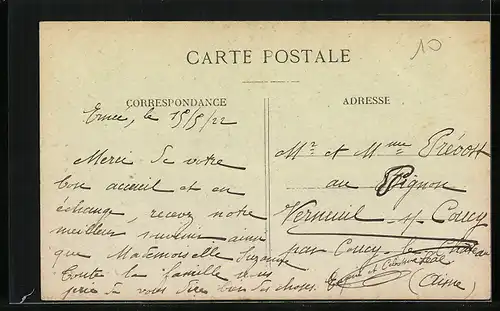 10
CARTE POSTALE
CORRESPONDANCE
ADRESSE
Ernée, le 15/5/22
Merci de votre
bon accueil et en
échange, recevez notre
meilleur souvenir ainsi
que Mademoiselle Suzanne
Toute la famille vous
prie de vous dire bien des choses.
Mr et Mme Prévost
au Pignon
Verneuil s/ Coucy
par Coucy le Château
(Aisne)